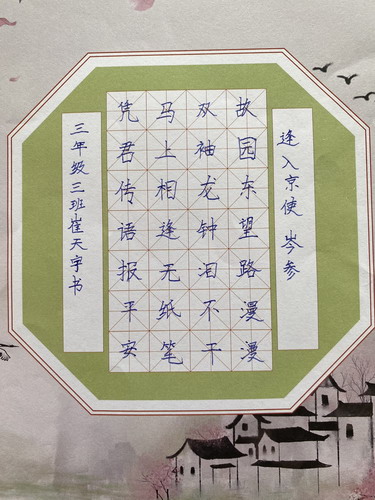 逢入京使 岑参
故园东望路漫漫
双袖龙钟泪不干
马上相逢无纸笔
凭君传语报平安
三年级三班崔天宇书